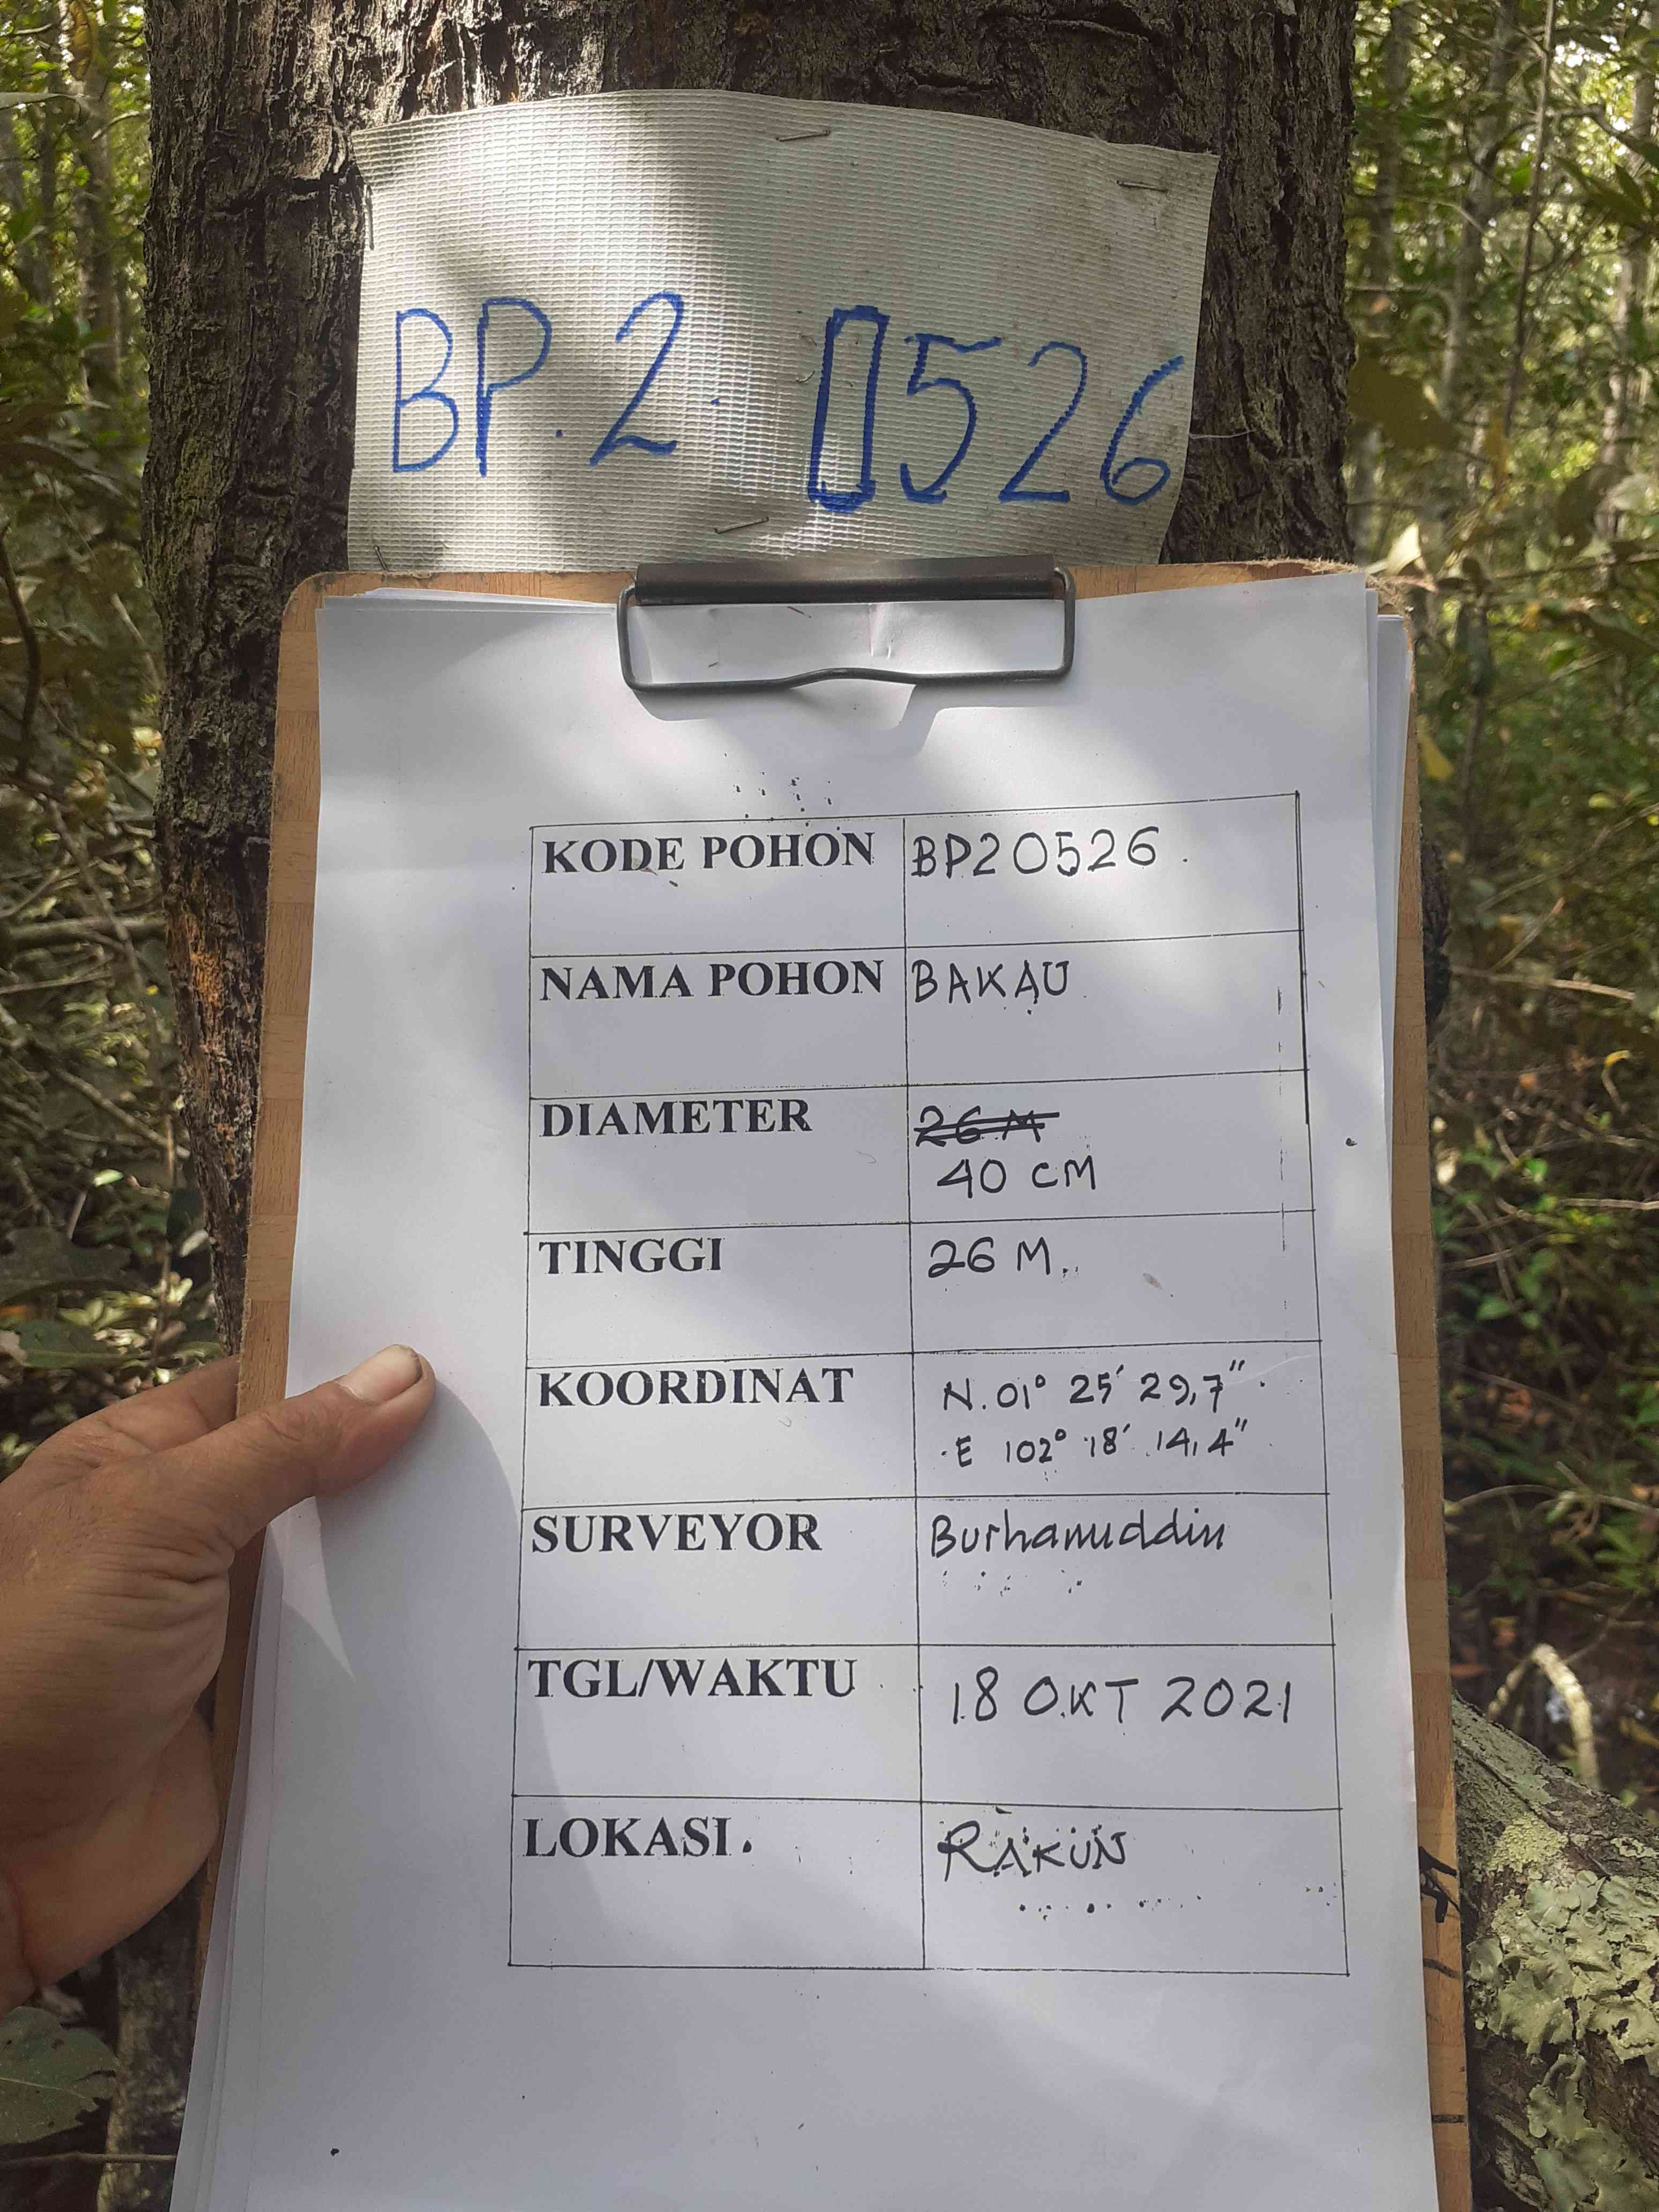 BP.2 0526
KODE POHON BP20526.
NAMA POHON BAKAU
DIAMETER 26 M
40 CM
TINGGI 26 M.
KOORDINAT N.01° 25' 29,7"
E 102° 18' 14,4"
SURVEYOR Burhanuddin
TGL/WAKTU 18 OKT 2021
LOKASI. RAKUN